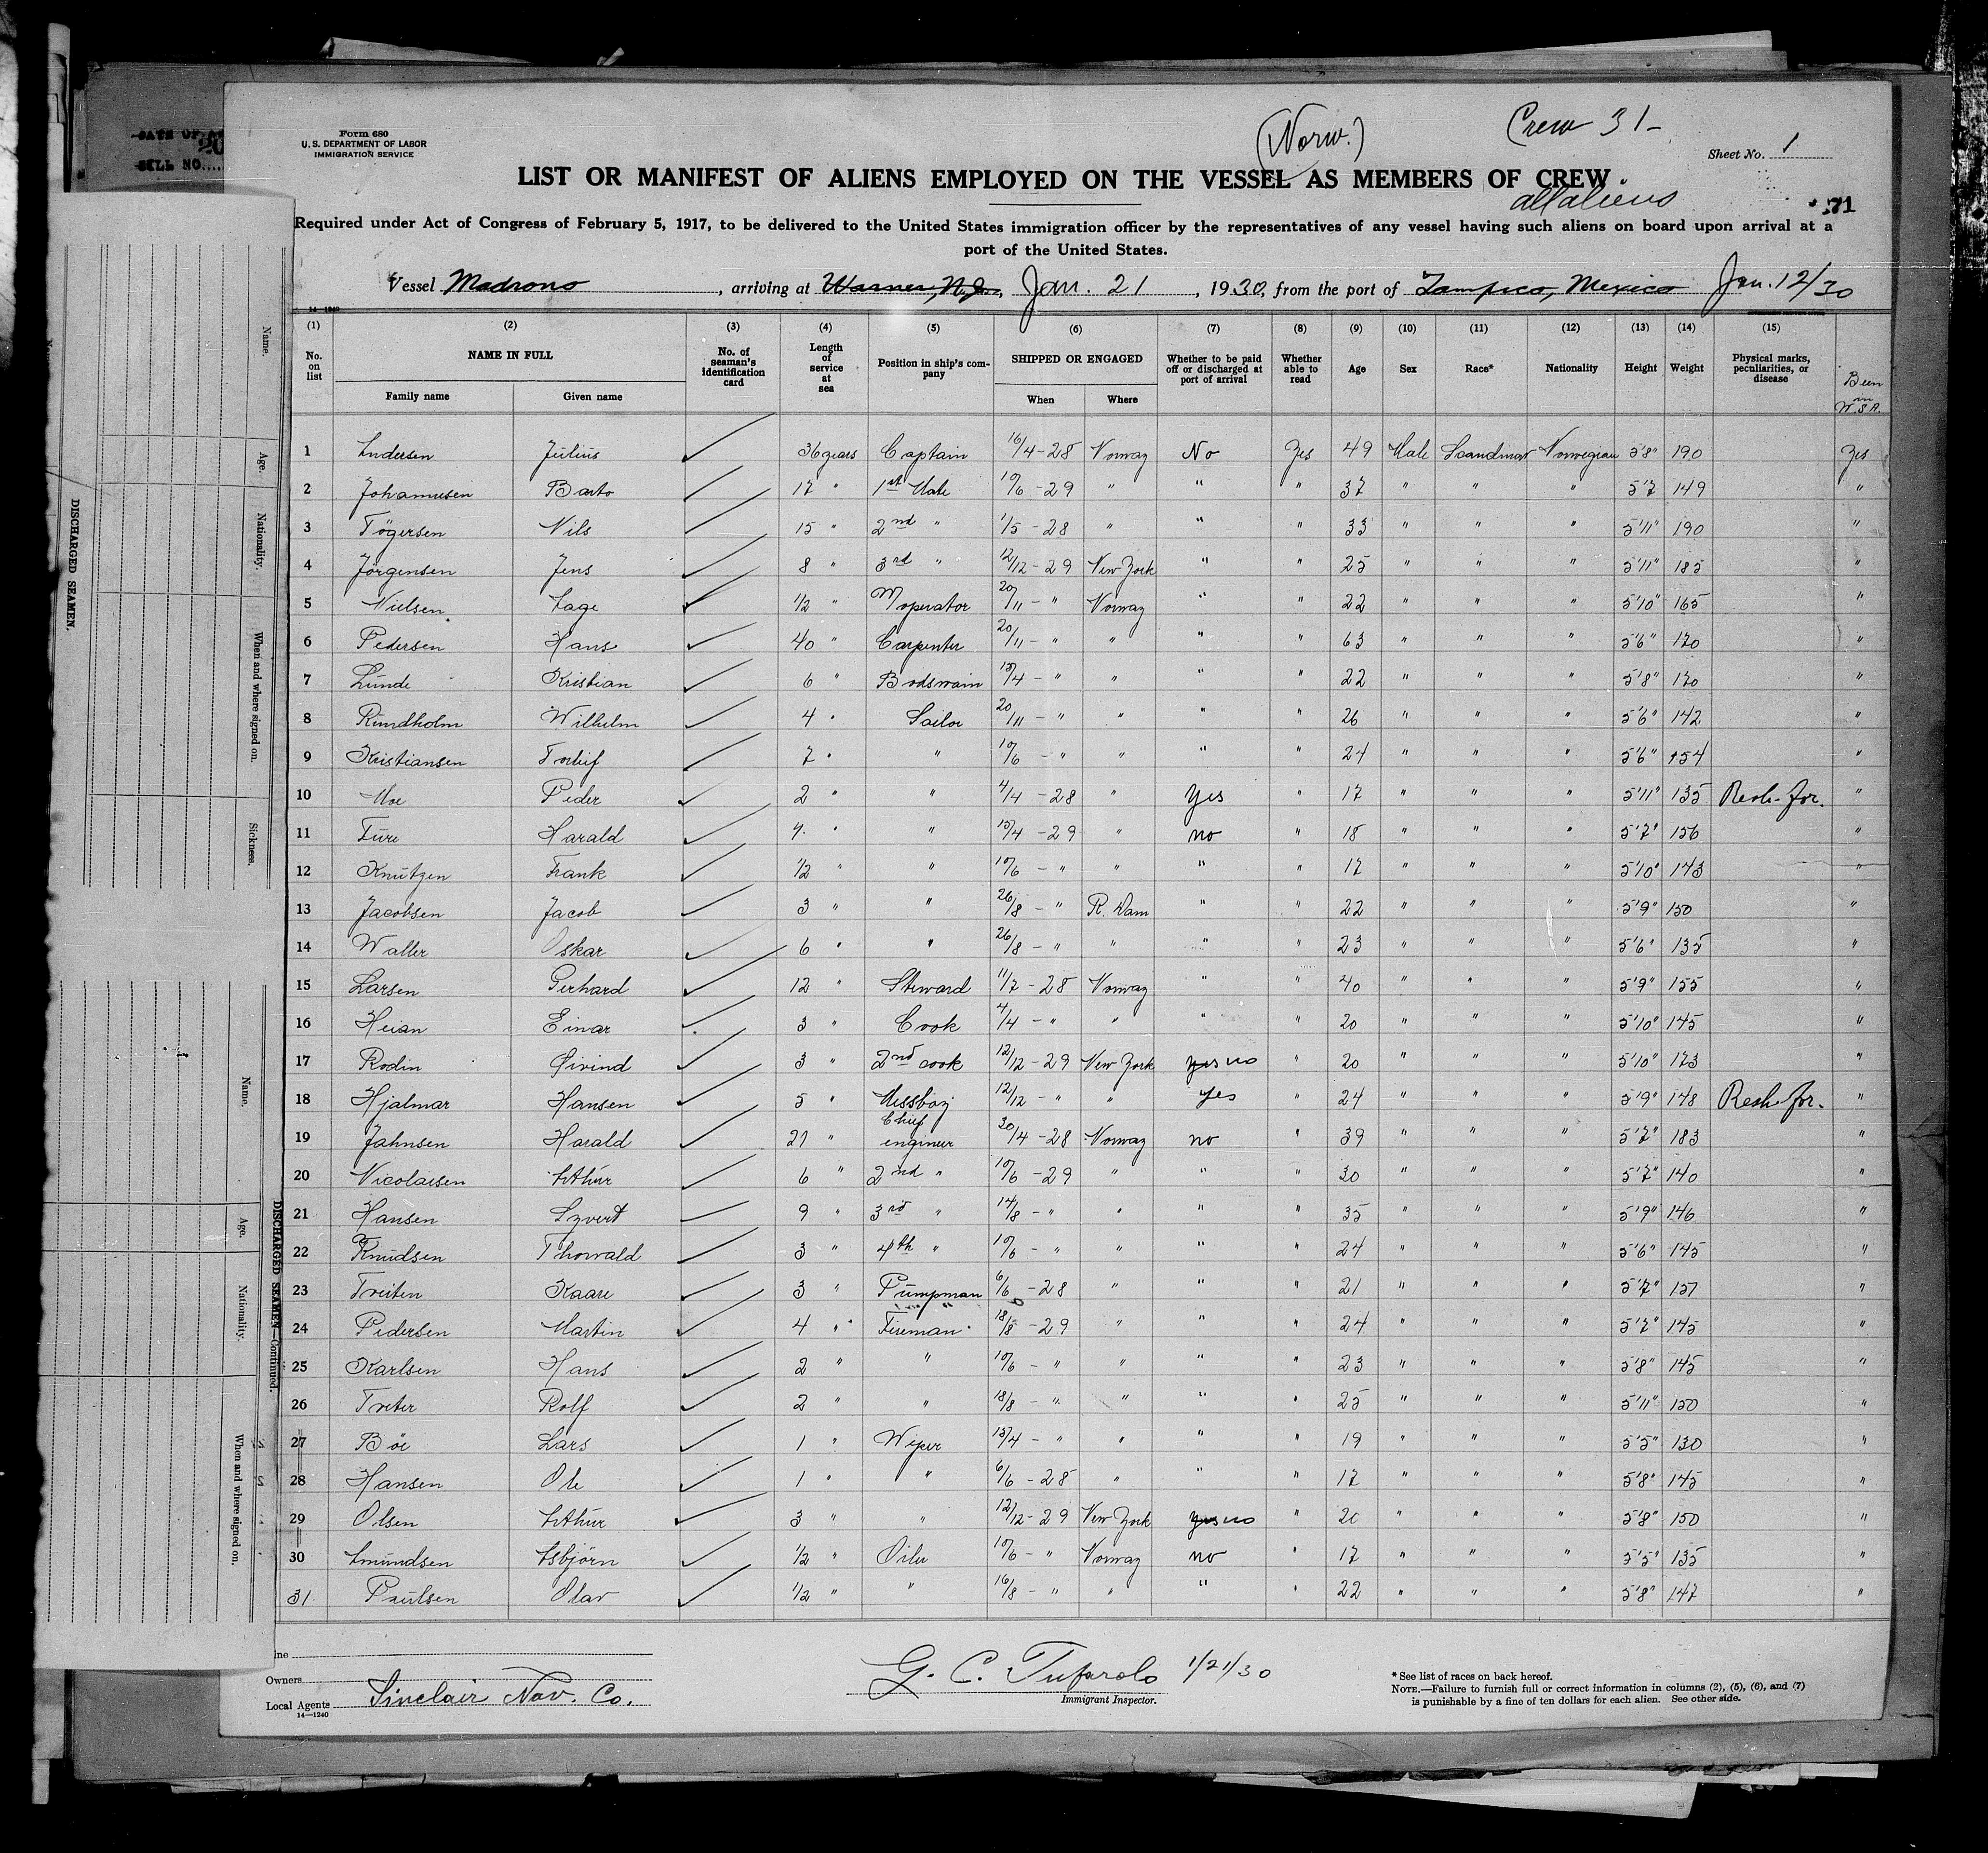 Form 680
U. S. DEPARTMENT OF LABOR
IMMIGRATION SERVICE
(Norw.)
Crew 31-
Sheet No. 1
LIST OR MANIFEST OF ALIENS EMPLOYED ON THE VESSEL AS MEMBERS OF CREW
all aliens
71
Required under Act of Congress of February 5, 1917, to be delivered to the United States immigration officer by the representatives of any vessel having such aliens on board upon arrival at a
port of the United States.
Vessel Madrono, arriving at Warner, N.J., Jan. 21, 1930, from the port of Tampico, Mexico Jan. 12/30
14—1240
(1) (2) (3) (4) (5) (6) (7) (8) (9) (10) (11) (12) (13) (14) (15)
No. on list NAME IN FULL Family name Given name No. of seaman's identification card Length of service at sea Position in ship's company SHIPPED OR ENGAGED When Where Whether to be paid off or discharged at port of arrival Whether able to read Age Sex Race* Nationality Height Weight Physical marks, peculiarities, or disease Been in U.S.A.
1 Andersen Julius 36 years Captain 16/4-28 Norway No Yes 49 Male Scandinav Norwegian 5'8" 190 Yes
2 Johannesen Barto 17 " 1st Mate 10/6-29 " " " 37 " " " 5'7 149 "
3 Tögersen Nils 15 " 2nd " 1/5-28 " " " 33 " " " 5'11" 190 "
4 Jörgensen Jens 8 " 3rd " 12/12-29 New York " " 25 " " " 5'11" 185 "
5 Nielsen Aage 1/2 " operator 20/11-" Norway " " 22 " " " 5'10" 165 "
6 Pedersen Hans 40 " Carpenter 20/11-" " " " 63 " " " 5'6" 170 "
7 Lunde Kristian 6 " Bodswain 15/4-" " " " 22 " " " 5'8" 170 "
8 Rundholm Wilhelm 4 " Sailor 20/11-" " " " 26 " " " 5'6" 142 "
9 Kristiansen Torleif 7 " " 10/6-" " " " 24 " " " 5'6" 154 "
10 Moe Peder 2 " " 4/4-28 " Yes " 17 " " " 5'11" 135 Resh-for. "
11 Ture Harald 4 " " 15/4-29 " no " 18 " " " 5'7" 156 "
12 Knutzen Frank 1/2 " " 10/6-" " " " 17 " " " 5'10" 143 "
13 Jacobsen Jacob 3 " " 26/8-" R. Dam " " 22 " " " 5'9" 150 "
14 Waller Oskar 6 " " 26/8-" " " " 23 " " " 5'6" 135 "
15 Larsen Gerhard 12 " Steward 11/7-28 Norway " " 40 " " " 5'9" 155 "
16 Heian Einar 3 " Cook 4/4-" " " " 20 " " " 5'10" 145 "
17 Rodin Öivind 3 " 2nd cook 12/12-29 New York yes no " 20 " " " 5'10" 173 "
18 Hjalmar Hansen 5 " Messboy 12/12-" " yes " 24 " " " 5'9" 148 Resh-for. "
19 Jahnsen Harald 21 " Chief engineer 30/4-28 Norway no " 39 " " " 5'7" 183 "
20 Nicolaisen Arthur 6 " 2nd " 10/6-29 " " " 30 " " " 5'7" 140 "
21 Hansen Syvert 9 " 3rd " 14/8-" " " " 35 " " " 5'9" 146 "
22 Knudsen Thorvald 3 " 4th " 10/6-" " " " 24 " " " 5'6" 145 "
23 Treiten Kaare 3 " Pumpman 6/6-28 " " " 21 " " " 5'7" 157 "
24 Pedersen Martin 4 " Fireman 18/8-29 " " " 24 " " " 5'7" 145 "
25 Karlsen Hans 2 " " 10/6-" " " " 23 " " " 5'8" 145 "
26 Treter Rolf 2 " " 18/8-" " " " 25 " " " 5'11" 150 "
27 Böe Lars 1 " Wiper 15/4-" " " " 19 " " " 5'5" 130 "
28 Hansen Ole 1 " " 6/6-28 " " " 17 " " " 5'8" 145 "
29 Olsen Arthur 3 " " 12/12-29 New York yes no " 20 " " " 5'8" 150 "
30 Amundsen Asbjörn 1/2 " Oiler 10/6-" Norway no " 17 " " " 5'5" 135 "
31 Paulsen Olav 1/2 " " 16/8-" " " " 22 " " " 5'8" 147 "
Line
Owners
Local Agents Sinclair Nav. Co.
14—1240
G. C. Tufarolo 1/21/30
Immigrant Inspector.
* See list of races on back hereof.
NOTE.—Failure to furnish full or correct information in columns (2), (5), (6), and (7)
is punishable by a fine of ten dollars for each alien. See other side.
DATE OF
20
BILL NO.
DISCHARGED SEAMEN.
Name.
Age.
Nationality.
When and where signed on.
Sickness.
DISCHARGED SEAMEN—Continued.
Name.
Age.
Nationality.
When and where signed on.